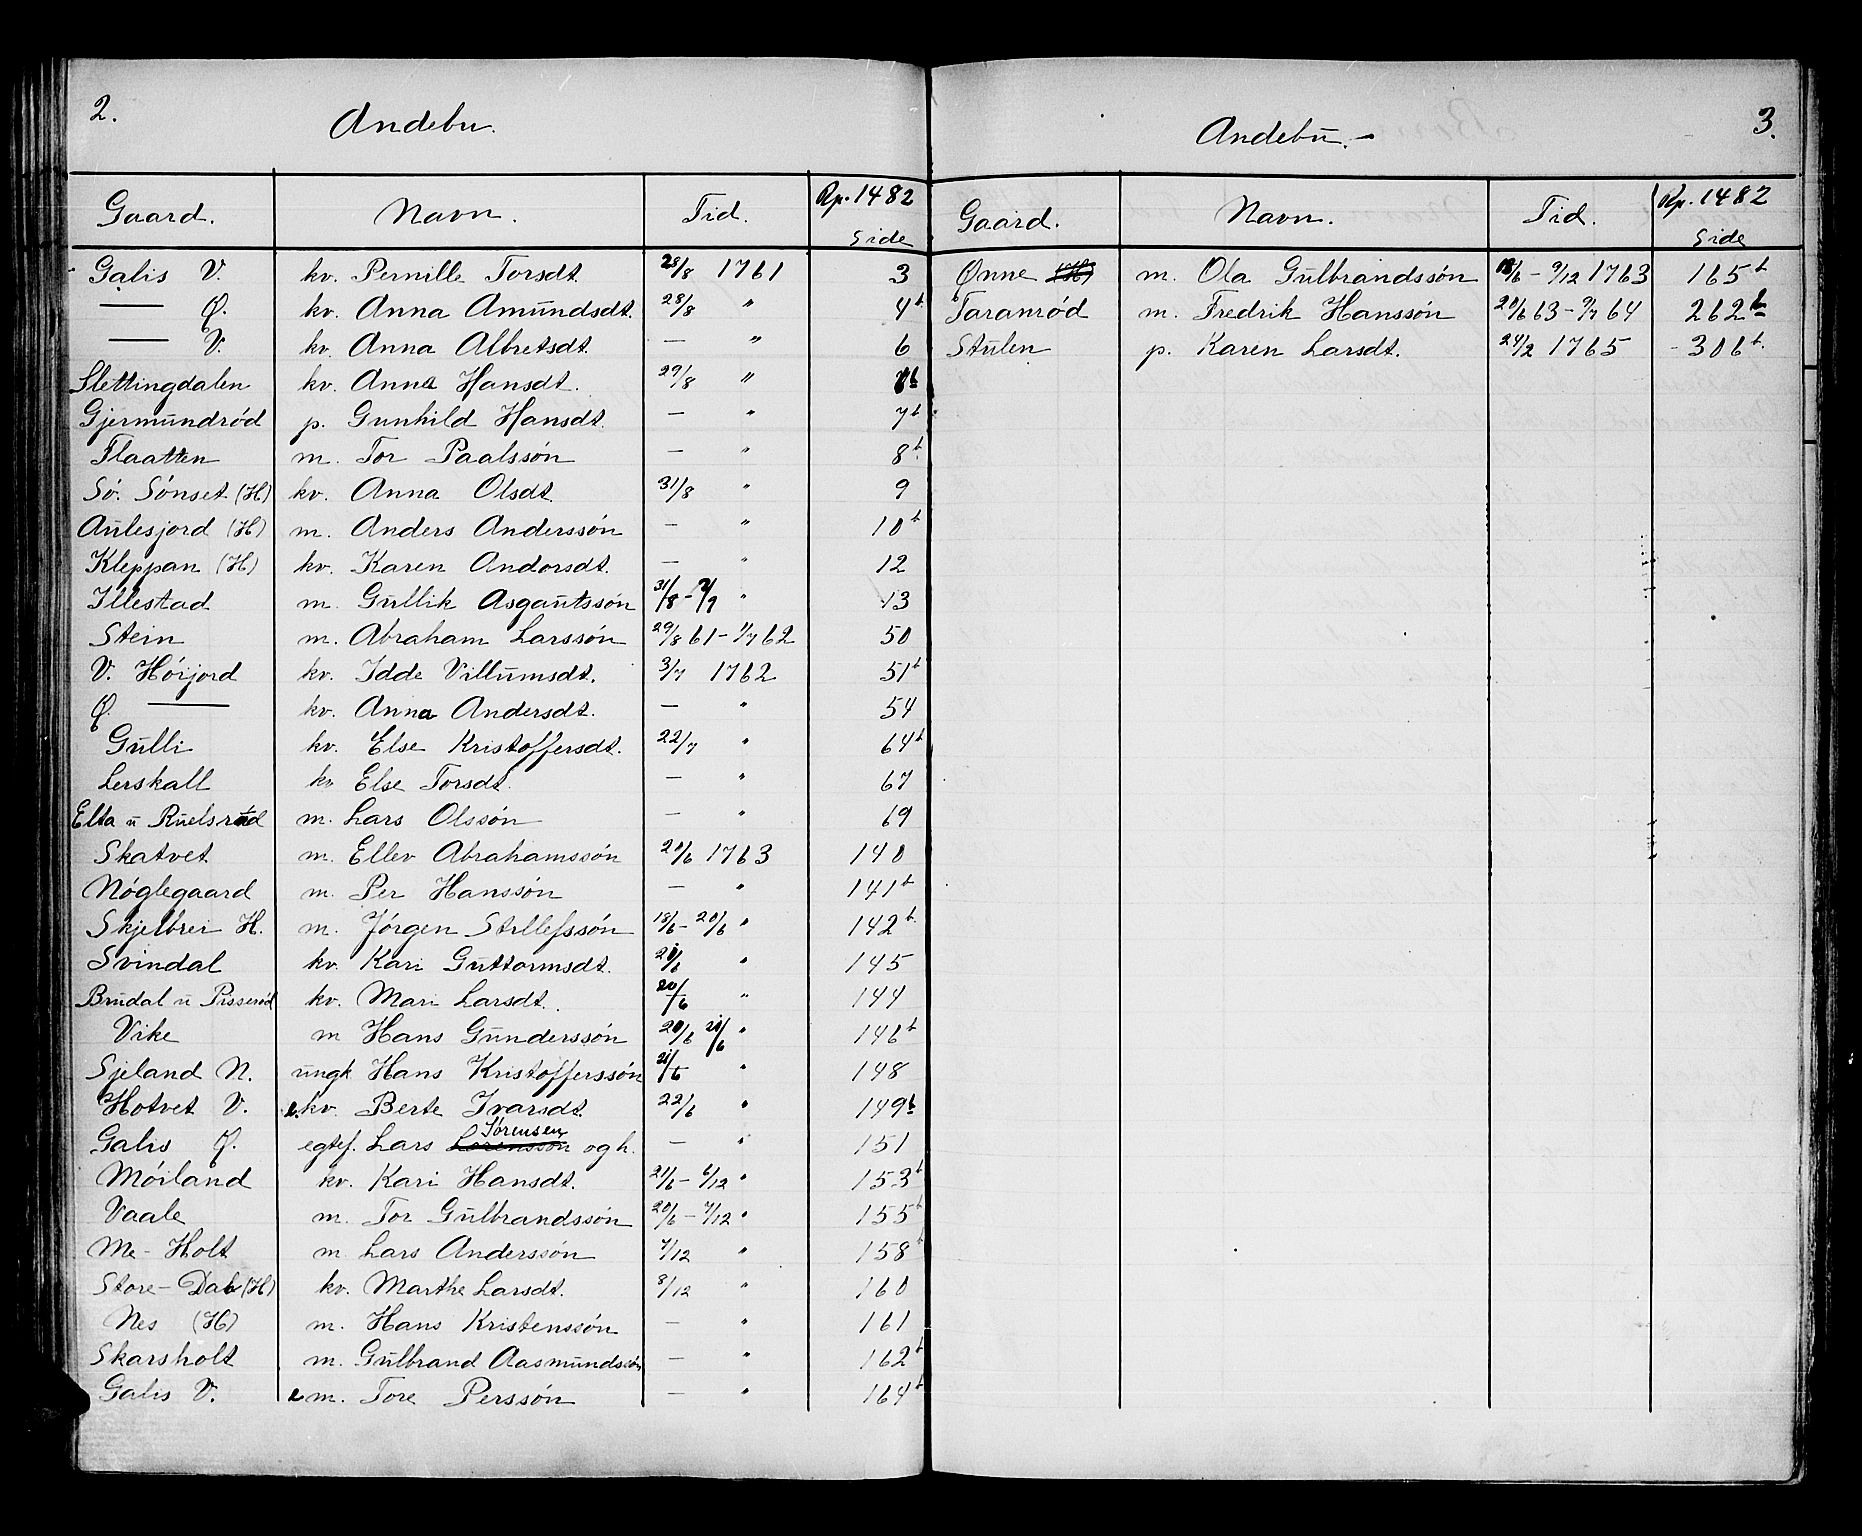 2.
Andebu.
Gaard. Navn. Tid. Rp. 1482 Side
Galis V. kv. Pernille Torsdt. 28/8 1761 3
— Ø. kv. Anna Amundsdt. 28/8 " 4b
— V. kv. Anna Albretsdt. — " 6
Slettingdalen kv. Anna Hansdt. 29/8 "
Gjermundrød p. Gunhild Hansdt. — " 7b
Flaatten m. Tor Paalssøn — " 8b
Sø. Sønset (H) kv. Anna Olsdt. 31/8 " 9
Aulesjord (H) m. Anders Anderssøn — " 10b
Kleppan (H) kv. Karen Andorsdt. — " 12
Illestad m. Gullik Asgautssøn 31/8 - 2/9 " 13
Stein m. Abraham Larssøn 29/8 61 - 1/7 62 50
V. Høijord kv. Idde Villumsdt. 3/7 1762 51b
Ø. — kv. Anna Andersdt. — " 54
Gulli kv. Else Kristoffersdt. 22/7 " 64b
Lerskall kv. Else Torsdt. — " 67
Elta u Ruelsrød m. Lars Olssøn — " 69
Skatvet m. Ellev Abrahamssøn 20/6 1763 140
Nøglegaard m. Per Hanssøn — " 141b
Skjelbrei H. m. Jørgen Stillefssøn 18/6 - 20/6 " 142b
Svindal kv. Kari Guttormsdt. 20/6 " 145
Brudal u Pisserød kv. Mari Larsdt. 20/6 " 144
Vike m Hans Gunderssøn 20/6 21/6 " 146b
Sjeland N. ungk Hans Kristofferssøn 21/6 " 148
Hotvet V. e. kv. Berte Ivarsdt. 22/6 " 149b
Galis Ø. egtef. Lars Lorenssøn Sørensen og h. — " 151
Møiland kv. Kari Hansdt. 21/6 - 6/12 " 153b
Vaale m. Tor Gulbrandssøn 20/6 - 7/12 " 155b
Me- Holt m. Lars Anderssøn 7/12 " 158b
Store-Dal (H) kv. Marthe Larsdt. 8/12 " 160
Nes (H) m. Hans Kristenssøn — " 161
Skarsholt m. Gulbrand Aasmundssøn — " 162b
Galis V. e m. Tore Perssøn — " 164b
3.
Andebu. -
Gaard. Navn. Tid. Rp. 1482 Side
Ønne (H) m. Ola Gulbrandssøn 18/6 - 9/12 1763 165b
Taranrød m. Fredrik Hanssøn 20/6 63 - 9/7 64 262b
Stulen p. Karen Larsdt. 24/2 1765 - 306b.